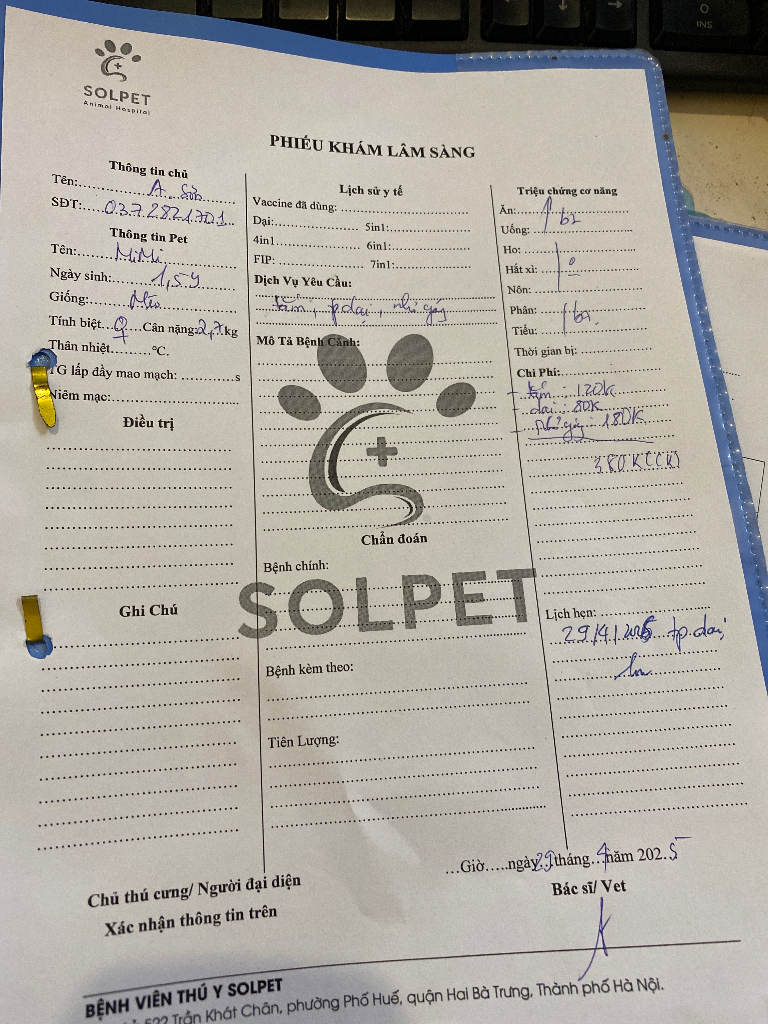 INS
SOLPET
Animal Hospital
PHIẾU KHÁM LÂM SÀNG
Thông tin chủ
Tên: A
SĐT: 0372821701
Thông tin Pet
Tên: MiMi
Ngày sinh: 1,5y
Giống: Mèo
Tính biệt ♀ Cân nặng: 2,7 kg
Thân nhiệt °C.
TG lấp đầy mao mạch: s
Niêm mạc:
Điều trị
Ghi Chú
Lịch sử y tế
Vaccine đã dùng:
Dại: 5in1:
4in1 6in1:
FIP: 7in1:
Dịch Vụ Yêu Cầu:
tắm, p dại, nhỏ gáy
Mô Tả Bệnh Cảnh:
SOLPET
Chẩn đoán
Bệnh chính:
Bệnh kèm theo:
Tiên Lượng:
Triệu chứng cơ năng
Ăn:
Uống: bt
Ho:
Hắt xì: 0
Nôn:
Phân: bt
Tiểu:
Thời gian bị:
Chi Phí:
- tắm : 120K
- dại : 80K
- nhỏ gáy : 180K
380K (CK)
Lịch hẹn:
29/4/2026 tp.dại
...Giờ.....ngày 29 tháng 4 năm 2025
Bác sĩ/ Vet
Chủ thú cưng/ Người đại diện
Xác nhận thông tin trên
BỆNH VIÊN THÚ Y SOLPET
522 Trần Khát Chân, phường Phố Huế, quận Hai Bà Trưng, Thành phố Hà Nội.